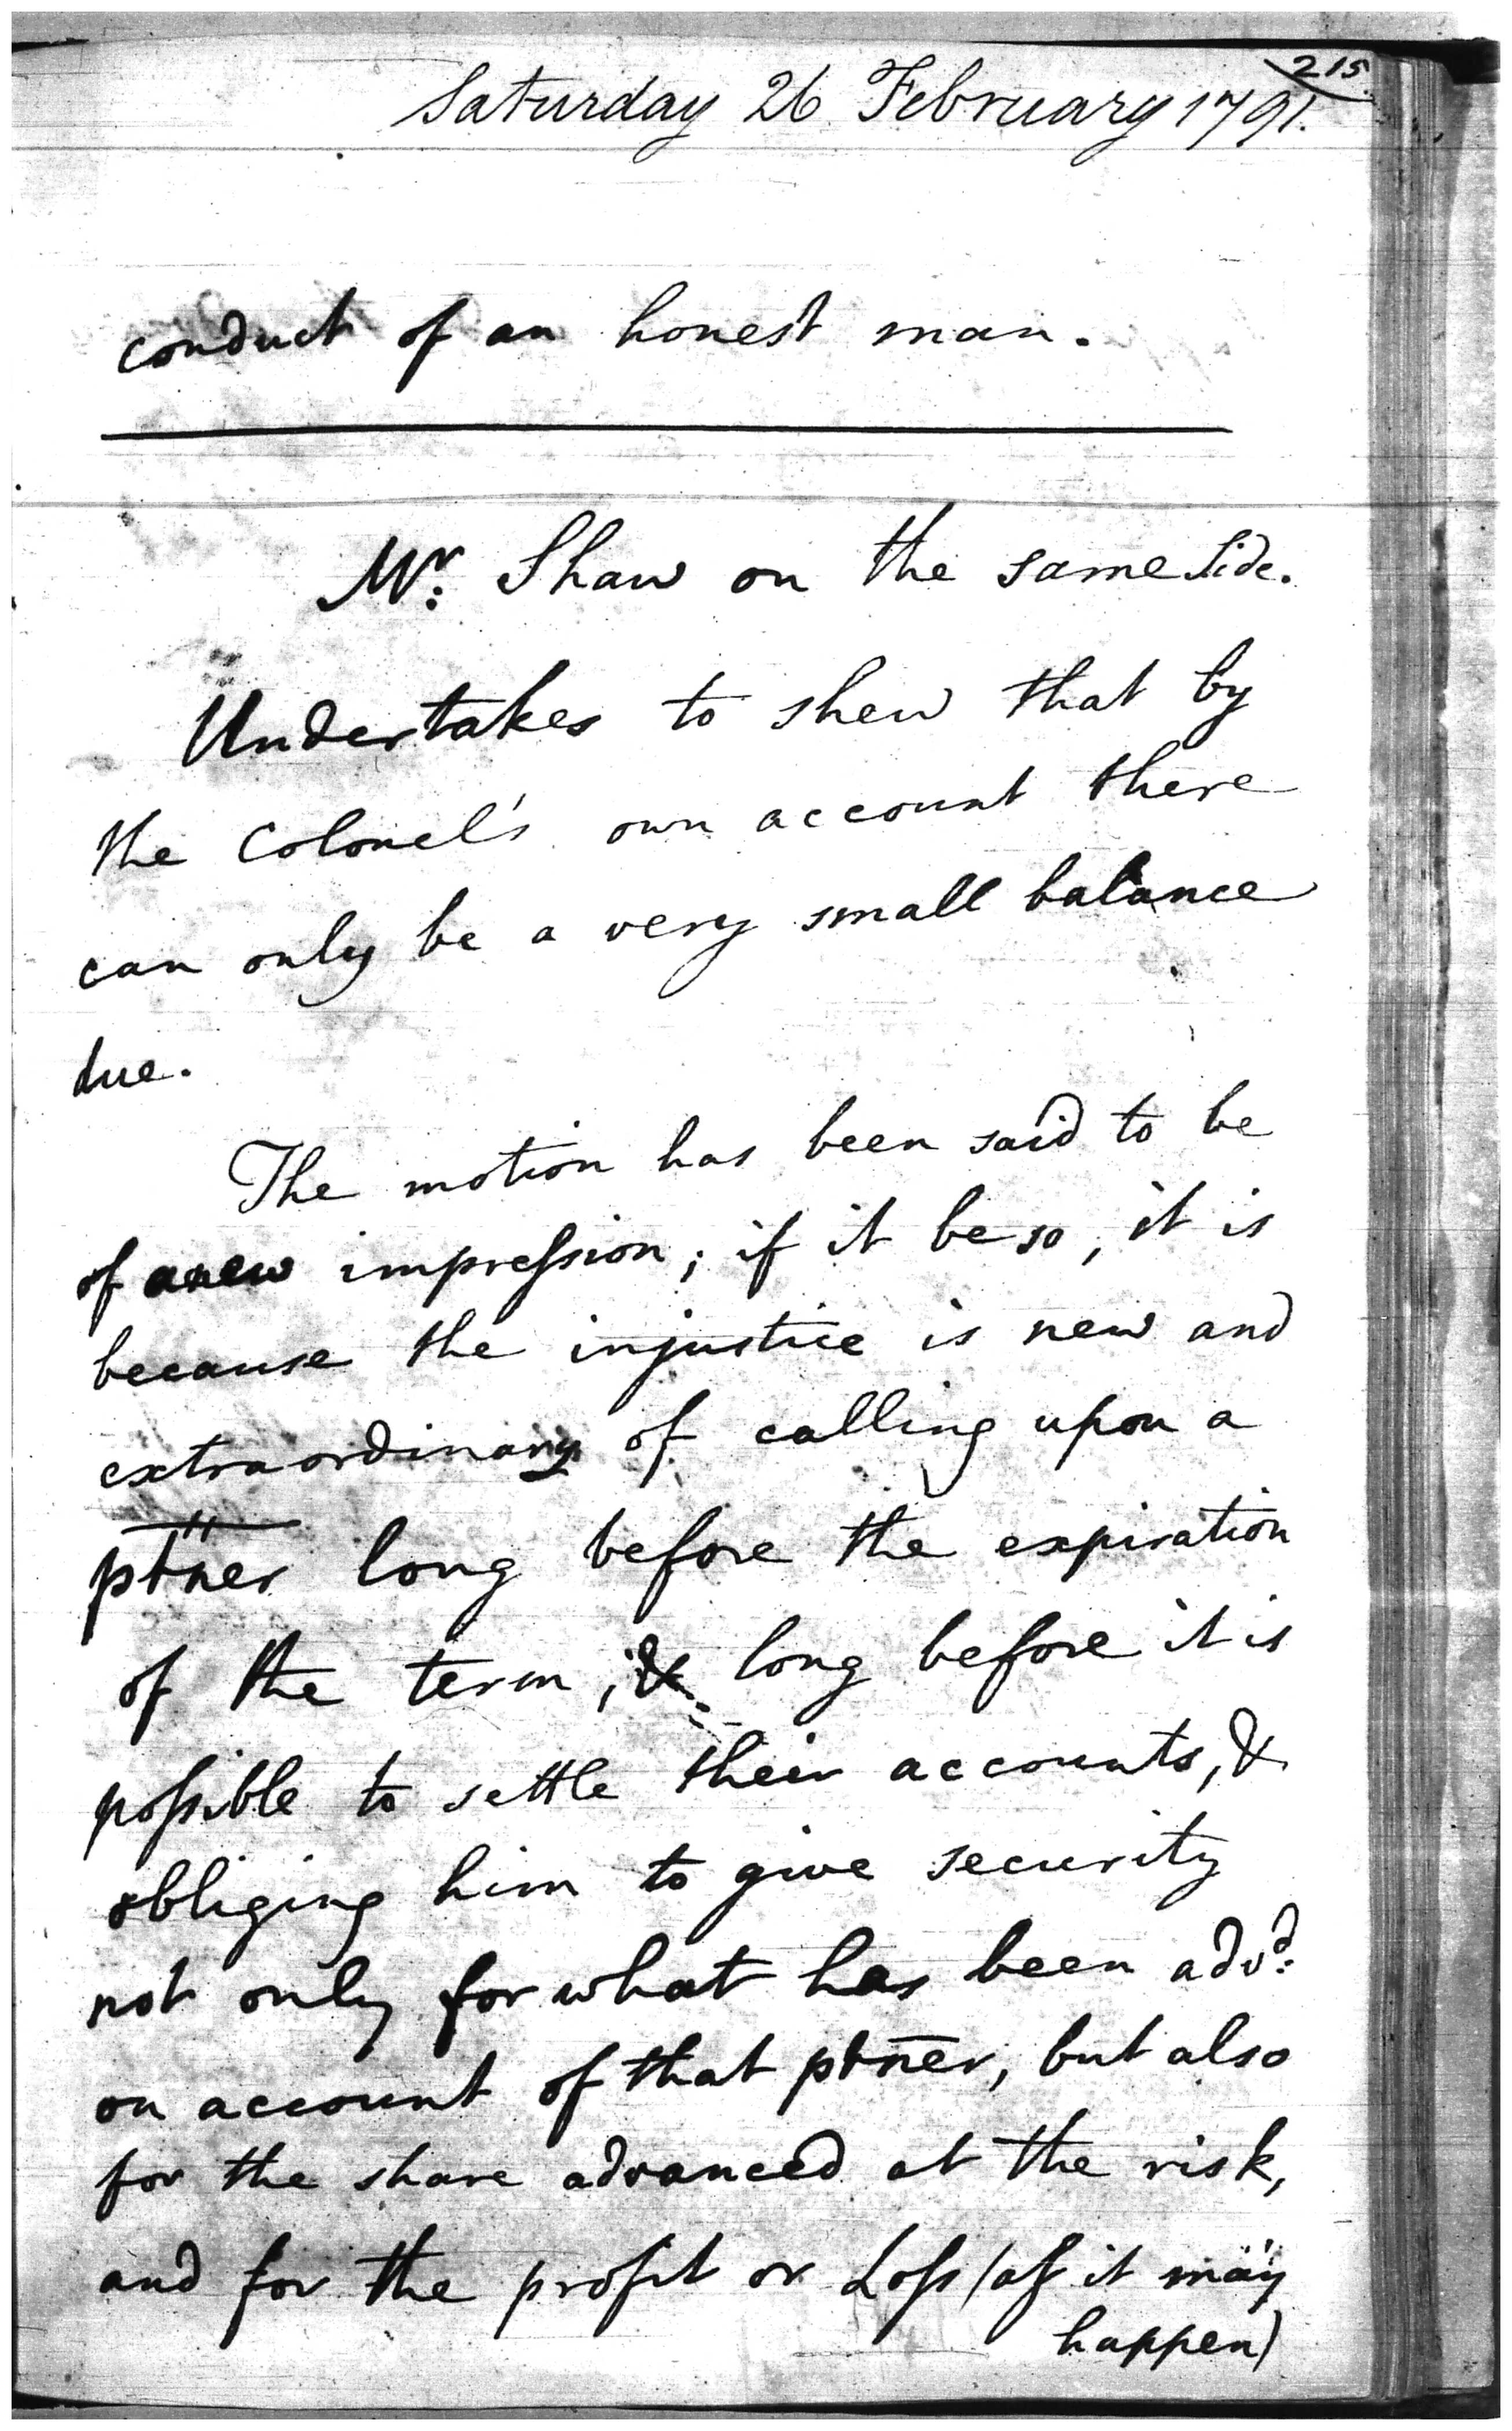 215
Saturday 26 February 1791.
conduct of an honest man.
Mr. Shaw on the same side.
Undertakes to shew that by
the Colonel's own account there
can only be a very small balance
due.
The motion has been said to be
of a new impreſsion; if it be so, it is
because the injustice is new and
extraordinary of calling upon a
ptner long before the expiration
of the term, & long before it is
poſsible to settle their accounts, &
obliging him to give security
not only for what has been advd.
on account of that ptner, but also
for the share advanced at the risk,
and for the profit or Loſs (as it may
happen)